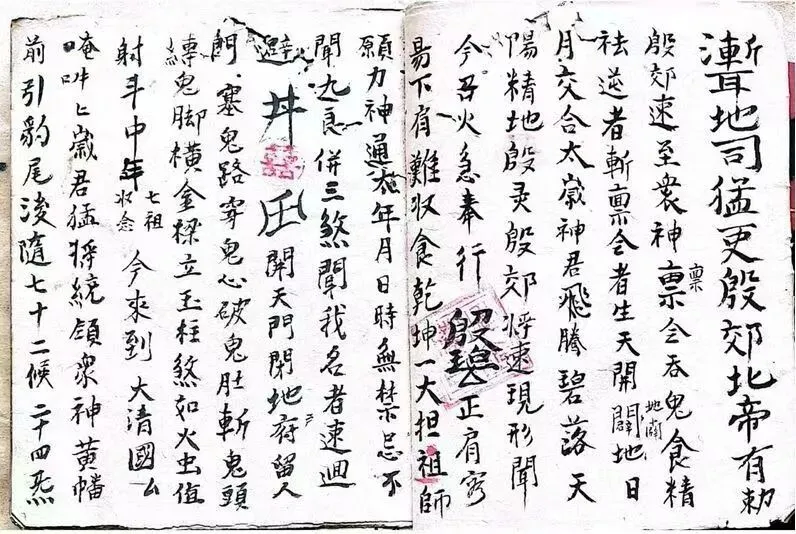 地司猛吏殷郊北帝有勅
殷郊速至衆神稟令吞鬼食精
稟
祛逆者斬稟令者生天開闢地日
地闢
月交合太歲神君飛騰碧落天
陽精地殷灵殷郊將速現形聞
今召火急奉行 正肩客
昜下有難収食乾坤一大担祖師
願力神通 年月日時無禁忌不
聞九良併三煞聞我名者速迴
避 井 開天門閉地府留人
門塞鬼路穿鬼心破鬼肚斬鬼頭
縛鬼脚橫金樑立玉柱煞如火虫值
射斗中年 七祖 今來到 大清國厶
収念
唵吽匕歲君猛將統領衆神黃幡
前引豹尾後隨七十二候二十四炁